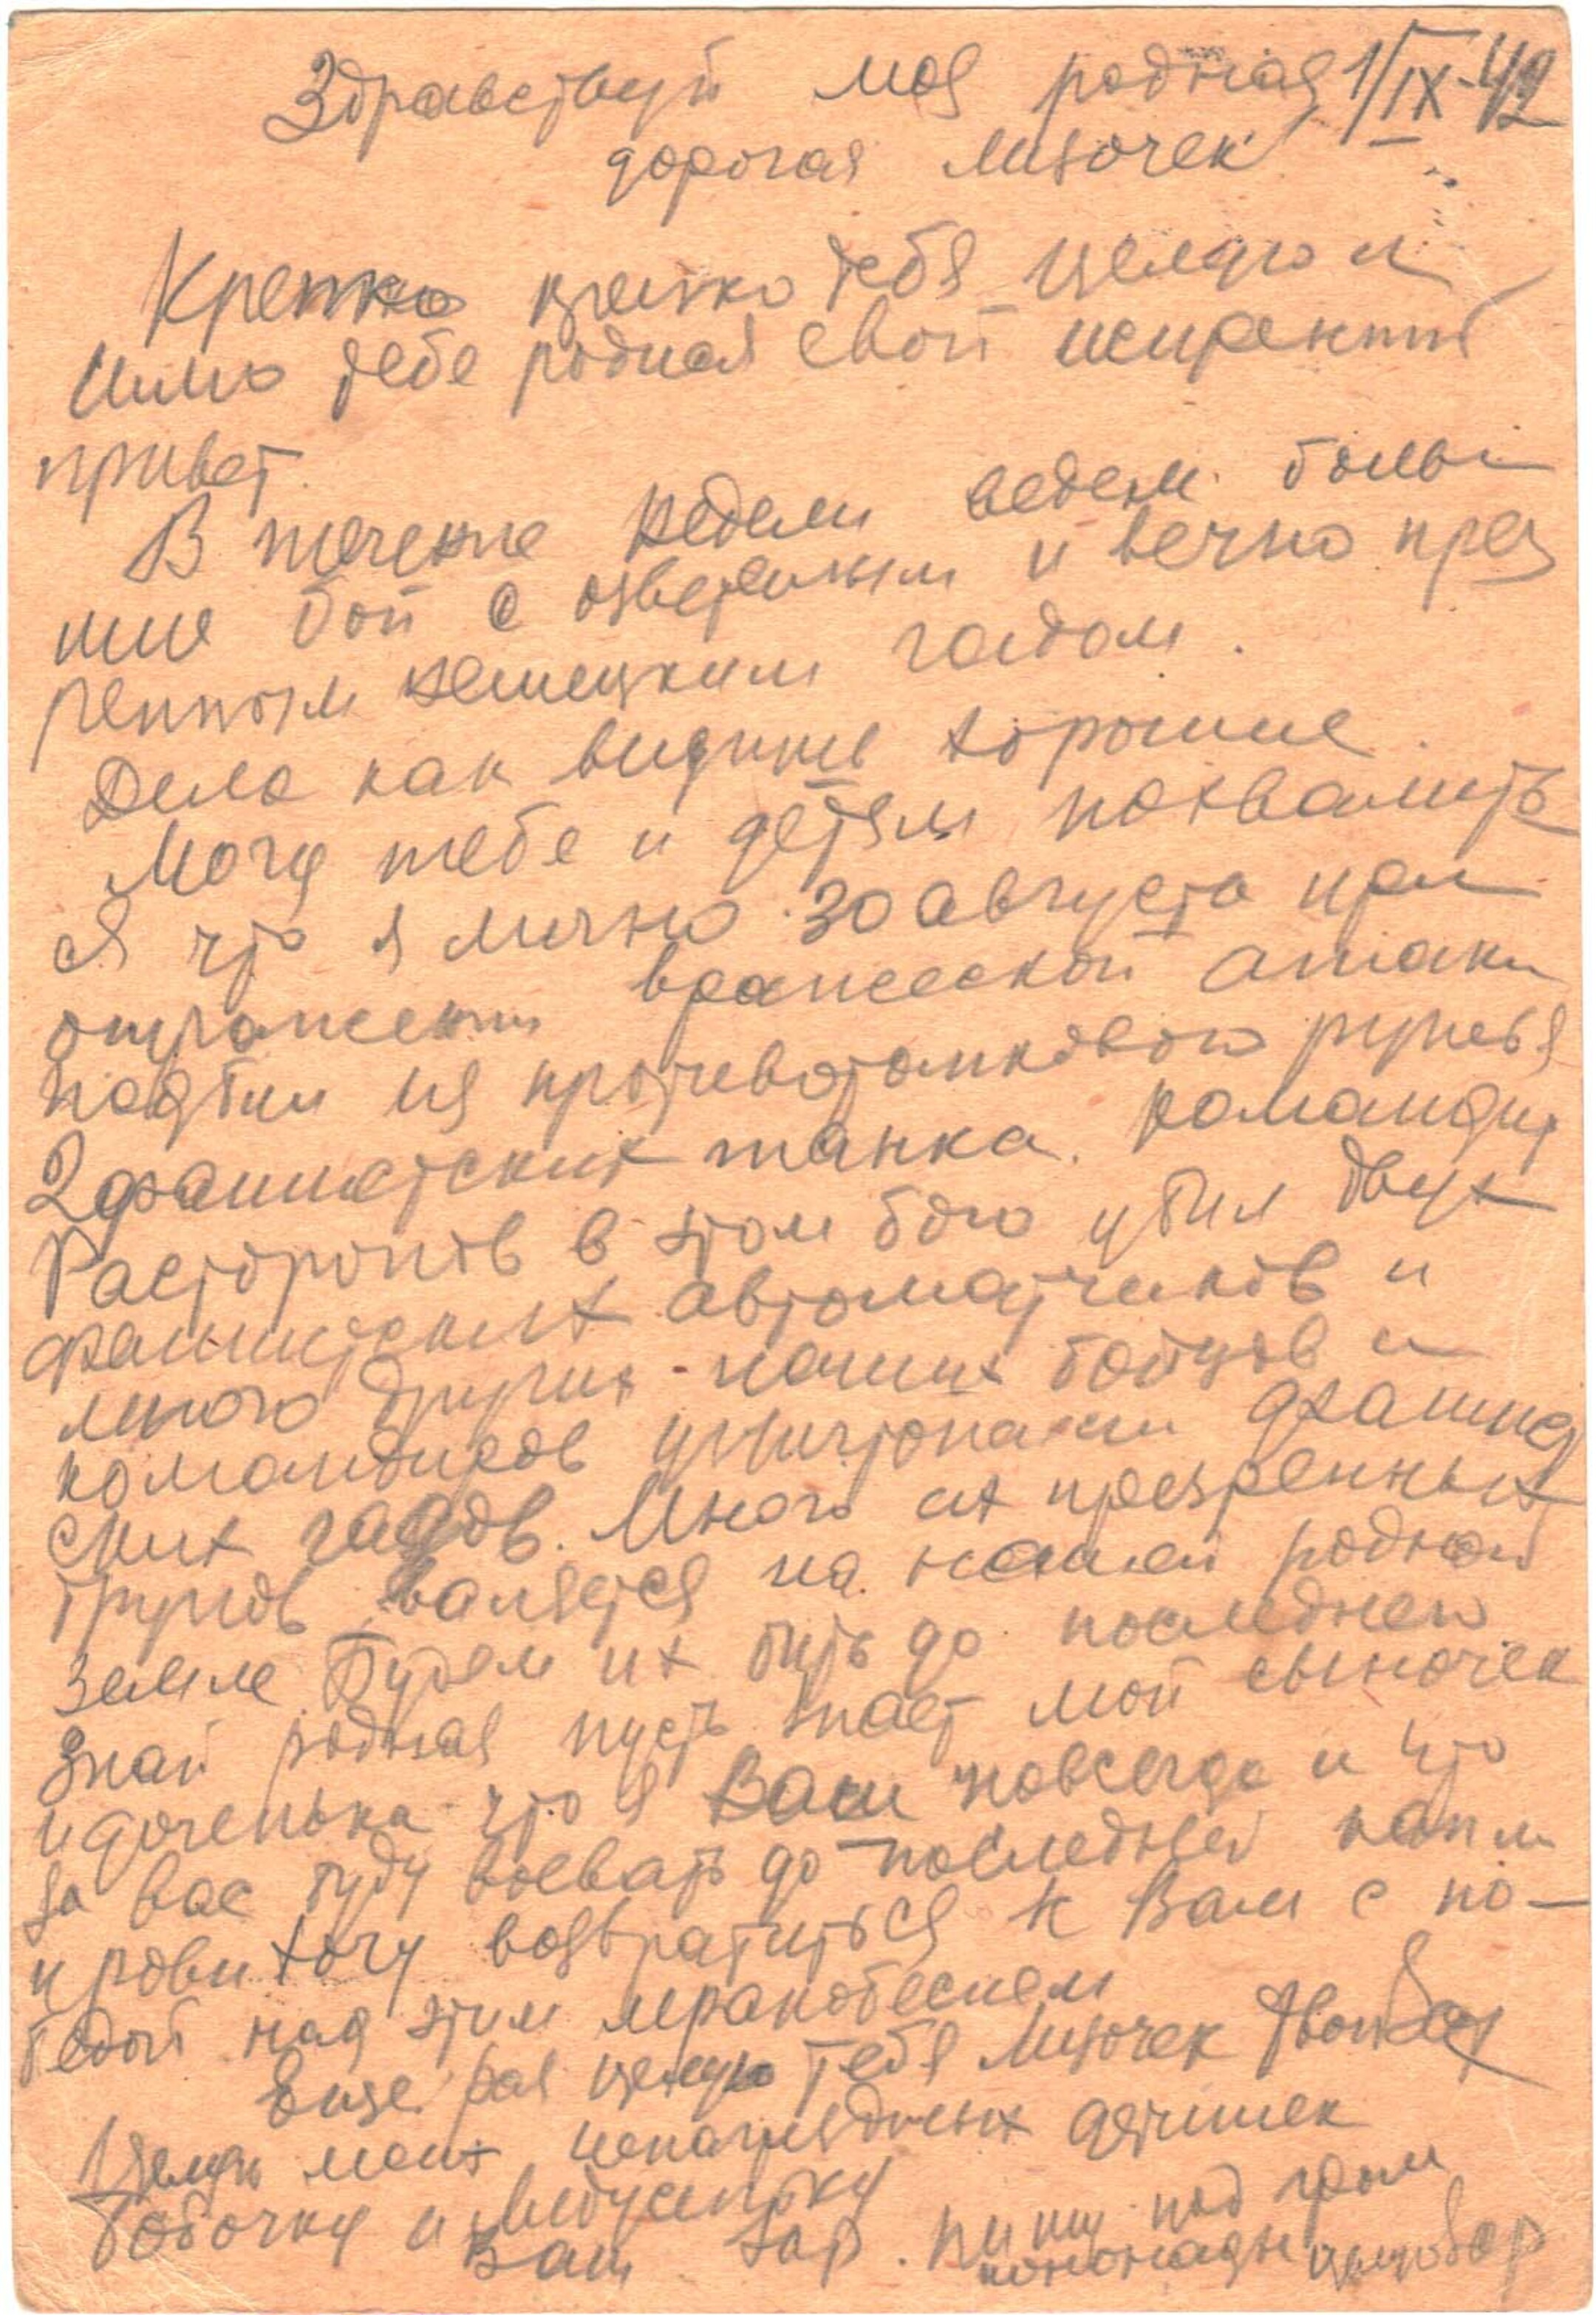 Здравствуй моя родная 1/IX-42
дорогая Лизочек
Крепко крепко тебя целую и
шлю тебе родная свой искренний
привет.
В течение недели ведем боль
шие бои с озверелым и вечно през
ренным немецким гадом.
Дела как видишь хорошие.
Могу тебе и детям похвалить
ся что я лично 30 августа при
отражении вражеской атаки
подбил из противотанкового ружья
2 фашистских танка. Командир
Расторопов в этом бою убил двух
фашистских автоматчиков и
много других наших бойцов и
командиров уничтожали фашист
ских гадов. Много их презренных
трупов валяется на нашей родной
земле. Будем их бить до последнего
Знай родная пусть знает мой сыночек
и доченька что я Ваш навсегда и что
за вас буду воевать до последней капли
крови хочу возвратиться к Вам с по-
бедой над этим мракобесием
Еще раз целую тебя Лизочек твой
Целую моих ненаглядных детишек
Бобочку и Людусеньку
Ваш Пишу под гром
канонады целую